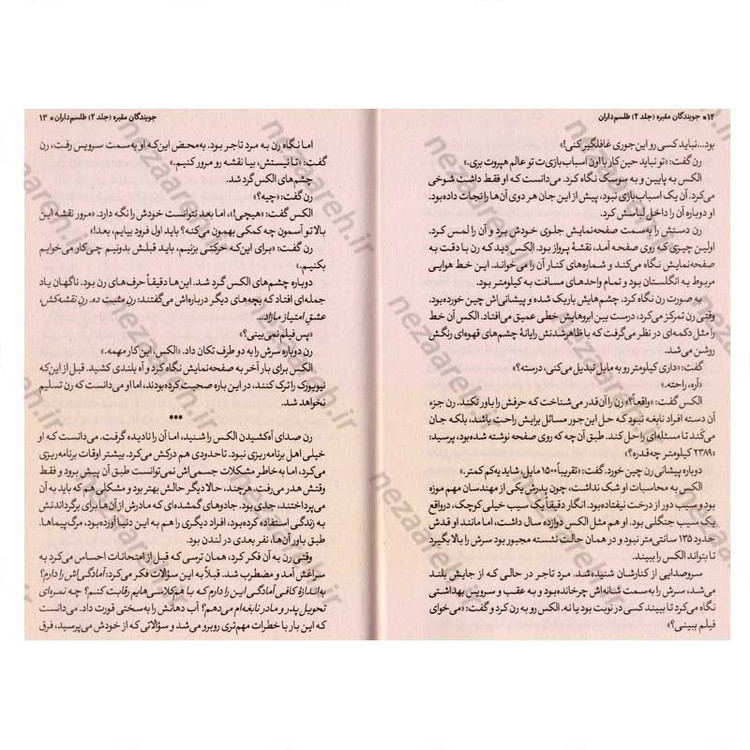 ۱۲ • جویندگان مقبره (جلد ۲) طلسم‌داران
بود...نباید کسی رو این‌جوری غافلگیر کنی!»
رن گفت: «تو نباید حین کار با اون اسباب‌بازی‌ت تو عالم هپروت بری.»
الکس به پایین و به سوسک نگاه کرد. می‌دانست که او فقط داشت شوخی
می‌کرد. آن یک اسباب‌بازی نبود، پیش از این جان هر دوی آن‌ها را نجات داده‌بود.
او دوباره آن را داخل لباسش کرد.
رن دستش را به‌سمت صفحه‌نمایش جلوی خودش برد و آن را لمس کرد.
اولین چیزی که روی صفحه آمد، نقشهٔ پرواز بود. الکس دید که رن با دقت به
صفحه‌نمایش نگاه می‌کند و شماره‌های کنار آن را می‌خواند. این خط هوایی
مربوط به انگلستان بود و تمام واحدهای مسافت به کیلومتر بود.
به صورت رن نگاه کرد. چشم‌هایش باریک شده و پیشانی‌اش چین خورده‌بود.
وقتی رن تمرکز می‌کرد، درست بین ابروهایش خطی عمیق می‌افتاد. الکس آن خط
را مثل دکمه‌ای در نظر می‌گرفت که با ظاهرشدنش رایانهٔ چشم‌های قهوه‌ای رنگش
روشن می‌شد.
گفت: «داری کیلومتر رو به مایل تبدیل می‌کنی، درسته؟»
«آره، راحته.»
الکس گفت: «واقعاً؟» رن را آن‌قدر می‌شناخت که حرفش را باور نکند. رن جزء
آن دسته افراد نابغه نبود که حل این‌جور مسائل برایش راحت باشد، بلکه جان
می‌کَند تا مسئله‌ای را حل کند. طبق آن‌چه که روی صفحه نوشته شده‌بود، پرسید:
«۲۳۸۹ کیلومتر چه‌قدره؟»
دوباره پیشانی رن چین خورد. گفت: «تقریباً ۱۵۰۰ مایل؛ شاید یه‌کم کمتر.»
الکس به محاسبات او شک نداشت، چون پدرش یکی از مهندسان مهم موزه
بود و سیب دور از درخت نیفتاده‌بود. انگار دقیقاً یک سیب خیلی کوچک، درواقع
یک سیب جنگلی بود. او هم مثل الکس دوازده سال داشت، اما مانند او قدش
حدود ۱۳۵ سانتی‌متر نبود و در همان حالت نشسته مجبور بود سرش را بالا بگیرد
تا بتواند الکس را ببیند.
سروصدایی از کنارشان شنیده‌شد. مرد تاجر در حالی که از جایش بلند
می‌شد، سرش را به‌سمت شانه‌اش چرخانده‌بود و به عقب و سرویس بهداشتی
نگاه می‌کرد تا ببیند کسی در نوبت بود یا نه. الکس رو به رن کرد و گفت: «می‌خوای
فیلم ببینی؟»
جویندگان مقبره (جلد ۲) طلسم‌داران • ۱۳
اما نگاه رن به مرد تاجر بود. به‌محض این‌که او به‌سمت سرویس رفت، رن
گفت: «تا نیستش، بیا نقشه رو مرور کنیم.»
چشم‌های الکس گرد شد.
رن گفت: «چیه؟»
الکس گفت: «هیچی!»، اما بعد نتوانست خودش را نگه دارد. «مرور نقشه این
بالا تو آسمون چه کمکی بهمون می‌کنه؟ باید اول فرود بیایم، بعد!»
رن گفت: «برای این‌که حرکتی بزنیم، باید قبلش بدونیم چی‌کار می‌خوایم
بکنیم.»
دوباره چشم‌های الکس گرد شد. این‌ها دقیقاً حرف‌های رن بود. ناگهان یاد
جمله‌ای افتاد که بچه‌های دیگر درباره‌اش می‌گفتند: رنِ مثبت ده. رنِ نقشه‌کش،
عشق امتیاز مازاد...
«پس فیلم نمی‌بینی؟»
رن دوباره سرش را به دو طرف تکان داد. «الکس، این کار مهمه.»
الکس برای بار آخر به صفحه‌نمایش نگاه کرد و آه بلندی کشید. قبل از این‌که
نیویورک را ترک کنند، در این باره صحبت کرده‌بودند، اما او می‌دانست که رن تسلیم
نخواهد شد.
•••
رن صدای آه‌کشیدن الکس را شنید، اما آن را نادیده گرفت. می‌دانست که او
خیلی اهل برنامه‌ریزی نبود. تاحدودی هم درکش می‌کرد. بیشتر اوقات برنامه‌ریزی
می‌کرد، اما به‌خاطر مشکلات جسمی‌اش نمی‌توانست طبق آن پیش برود و فقط
وقتش هدر می‌رفت. هرچند، حالا دیگر حالش بهتر بود و مشکلی هم که باید به آن
می‌پرداختند، جدی بود. جادوهای گمشده‌ای که مادرش از آن‌ها برای برگرداندنش
به زندگی استفاده کرده‌بود، افراد دیگری را هم به این دنیا آورده‌بود. مرگ‌پیماها.
طبق باور آن‌ها، نفر بعدی در لندن بود.
وقتی رن به آن فکر کرد، همان ترسی که قبل از امتحانات احساس می‌کرد به
سراغش آمد و مضطرب شد. قبلاً به این سؤالات فکر می‌کرد: آمادگی‌اش را دارم؟
به‌اندازهٔ کافی آمادگی این را دارم که با هم‌کلاسی‌هایم رقابت کنم؟ چه نمره‌ای
تحویل پدر و مادر نابغه‌ام می‌دهم؟ آب دهانش را به‌سختی قورت داد. می‌دانست
که این بار با خطرات مهم‌تری روبرو می‌شد و سؤالاتی که از خودش می‌پرسید، فرق
nezaareh.ir